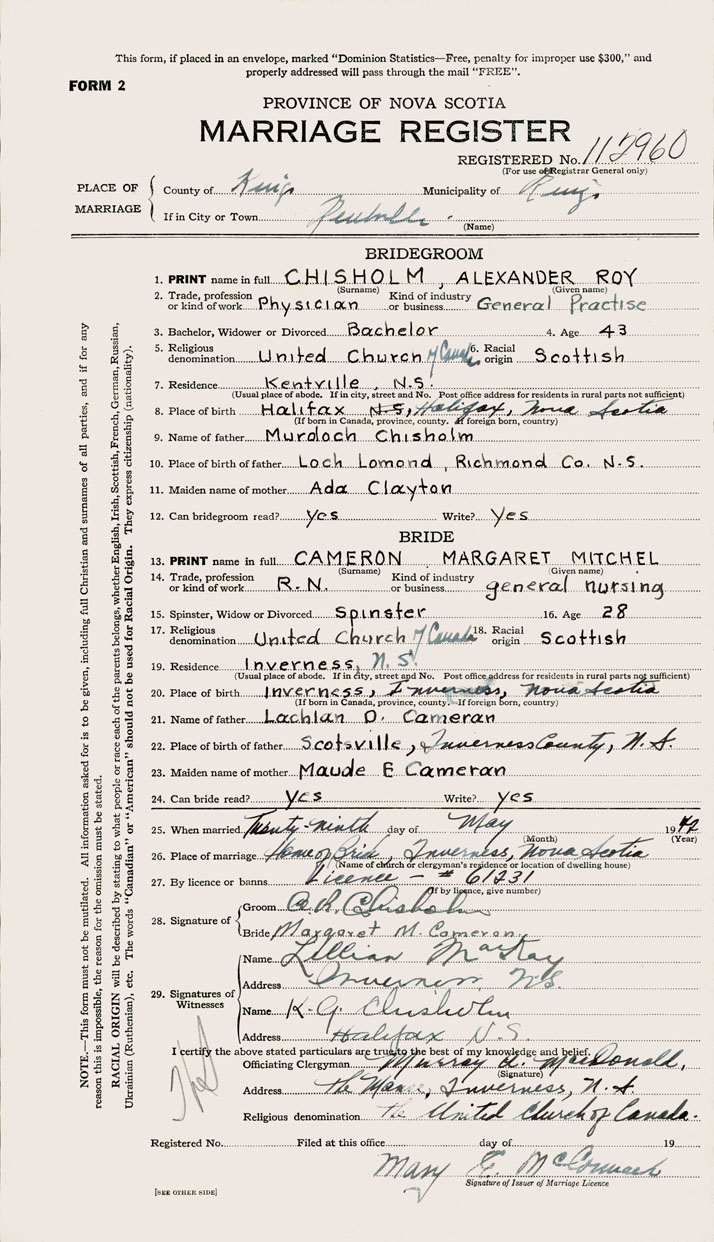 This form, if placed in an envelope, marked “Dominion Statistics—Free, penalty for improper use $300,” and
properly addressed will pass through the mail “FREE”.
FORM 2
PROVINCE OF NOVA SCOTIA
MARRIAGE REGISTER
REGISTERED No. 112960
(For use of Registrar General only)
PLACE OF MARRIAGE
County of Kings Municipality of Kings
If in City or Town Kentville.
(Name)
BRIDEGROOM
1. PRINT name in full CHISHOLM, ALEXANDER ROY
(Surname) (Given name)
2. Trade, profession or kind of work Physician Kind of industry or business General Practise
3. Bachelor, Widower or Divorced Bachelor 4. Age 43
5. Religious denomination United Church of Canada 6. Racial origin Scottish
7. Residence Kentville, N.S.
(Usual place of abode. If in city, street and No. Post office address for residents in rural parts not sufficient)
8. Place of birth Halifax N.S, Halifax, Nova Scotia
(If born in Canada, province, county. If foreign born, country)
9. Name of father Murdoch Chisholm
10. Place of birth of father Loch Lomond, Richmond Co. N.S.
11. Maiden name of mother Ada Clayton
12. Can bridegroom read? yes Write? Yes
BRIDE
13. PRINT name in full CAMERON MARGARET MITCHEL
(Surname) (Given name)
14. Trade, profession or kind of work R.N. Kind of industry or business general nursing
15. Spinster, Widow or Divorced Spinster 16. Age 28
17. Religious denomination United Church of Canada 18. Racial origin Scottish
19. Residence Inverness, N.S.
(Usual place of abode. If in city, street and No. Post office address for residents in rural parts not sufficient)
20. Place of birth Inverness, Inverness, Nova Scotia
(If born in Canada, province, county. If foreign born, country)
21. Name of father Lachlan D. Cameran
22. Place of birth of father Scotsville, Inverness County, N.S.
23. Maiden name of mother Maude E Cameran
24. Can bride read? yes Write? yes
25. When married Twenty-ninth day of May 1942
(Month) (Year)
26. Place of marriage Home of Bride, Inverness, Nova Scotia
(Name of church or clergyman's residence or location of dwelling house)
27. By licence or banns Licence - # 61231
(If by licence, give number)
28. Signature of
Groom A.R. Chisholm
Bride Margaret M. Cameron.
29. Signatures of Witnesses
Name Lillian MacKay
Address Inverness N.S.
Name K. G. Chisholm
Address Halifax N.S.
I certify the above stated particulars are true to the best of my knowledge and belief.
Officiating Clergyman Murray A. MacDonald,
(Signature)
Address The Manse, Inverness, N.S.
Religious denomination The United Church of Canada.
Registered No. Filed at this office day of 19
Mary E. McCormack
Signature of Issuer of Marriage Licence
[SEE OTHER SIDE]
NOTE.—This form must not be mutilated. All information asked for is to be given, including full Christian and surnames of all parties, and if for any
reason this is impossible, the reason for the omission must be stated.
RACIAL ORIGIN will be described by stating to what people or race each of the parents belongs, whether English, Irish, Scottish, French, German, Russian,
Ukrainian (Ruthenian), etc. The words “Canadian” or “American” should not be used for Racial Origin. They express citizenship (nationality).